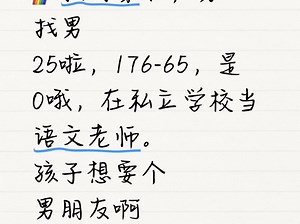 找男
25啦，176-65，是
0哦，在私立学校当
语文老师。
孩子想要个
男朋友啊